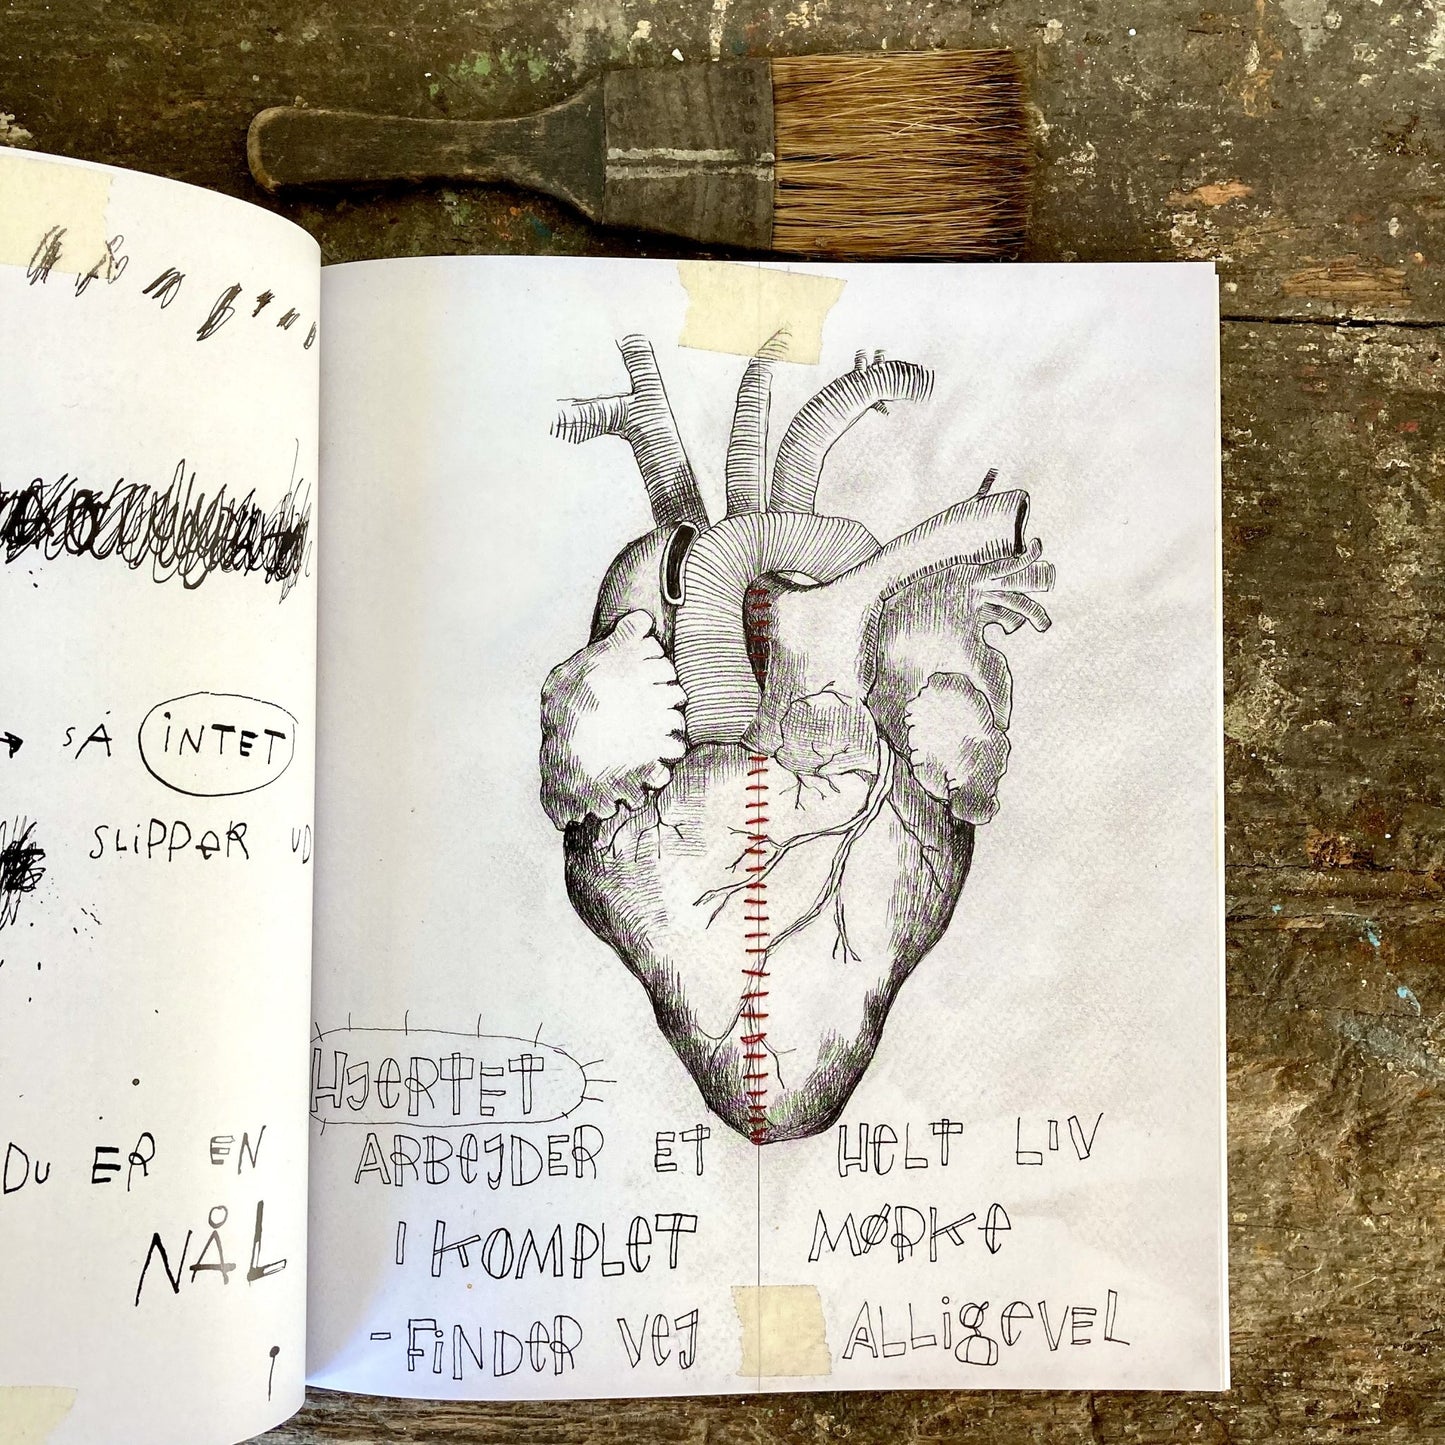 SÅ INTET
SLIPPER UD
DU ER EN
NÅL
HJERTET
ARBEJDER ET HELT LIV
I KOMPLET MØRKE
- FINDER VEJ ALLIGEVEL